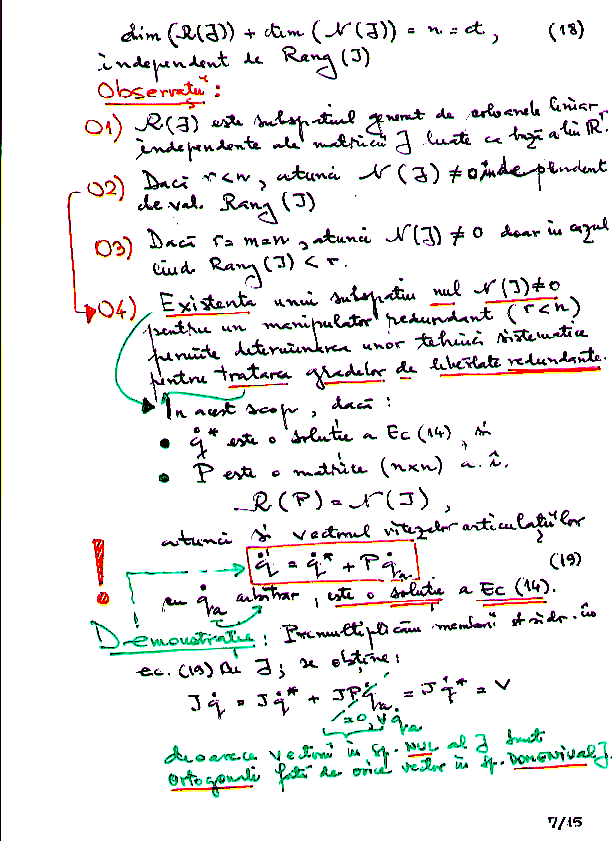 dim (R(J)) + dim (N(J)) = n = ct, (18)
independent de Rang (J)
Observații :
O1) R(J) este subspațiul generat de coloanele liniar
independente ale matricii J luate ca bază a lui Rʳ.
O2) Dacă r<n, atunci N(J) ≠ 0 independent
de val. Rang (J)
O3) Dacă r=m=n, atunci N(J) ≠ 0 doar în cazul
când Rang (J) < r.
O4) Existenta unui subspațiu nul N(J)≠0
pentru un manipulator redundant (r<n)
permite determinarea unor tehnici sistematice
pentru tratarea gradelor de libertate redundante.
In acest scop, dacă :
• q̇* este o soluție a Ec (14), și
• P este o matrice (nxn) a. î.
R(P) = N(J),
atunci și vectorul vitezelor articulațiilor
! q̇ = q̇* + P q̇ₐ (19)
cu q̇ₐ arbitrar, este o soluție a Ec (14).
Demonstratie : Premultiplicăm membrii st și dr. în
ec. (19) cu J ; se obține :
J q̇ = J q̇* + J P q̇ₐ = J q̇* = v
=0, ∀ q̇ₐ
deoarece vectorii în sp. NUL al J sunt
ortogonali față de orice vector în sp. DOMENIUL J.
7/15